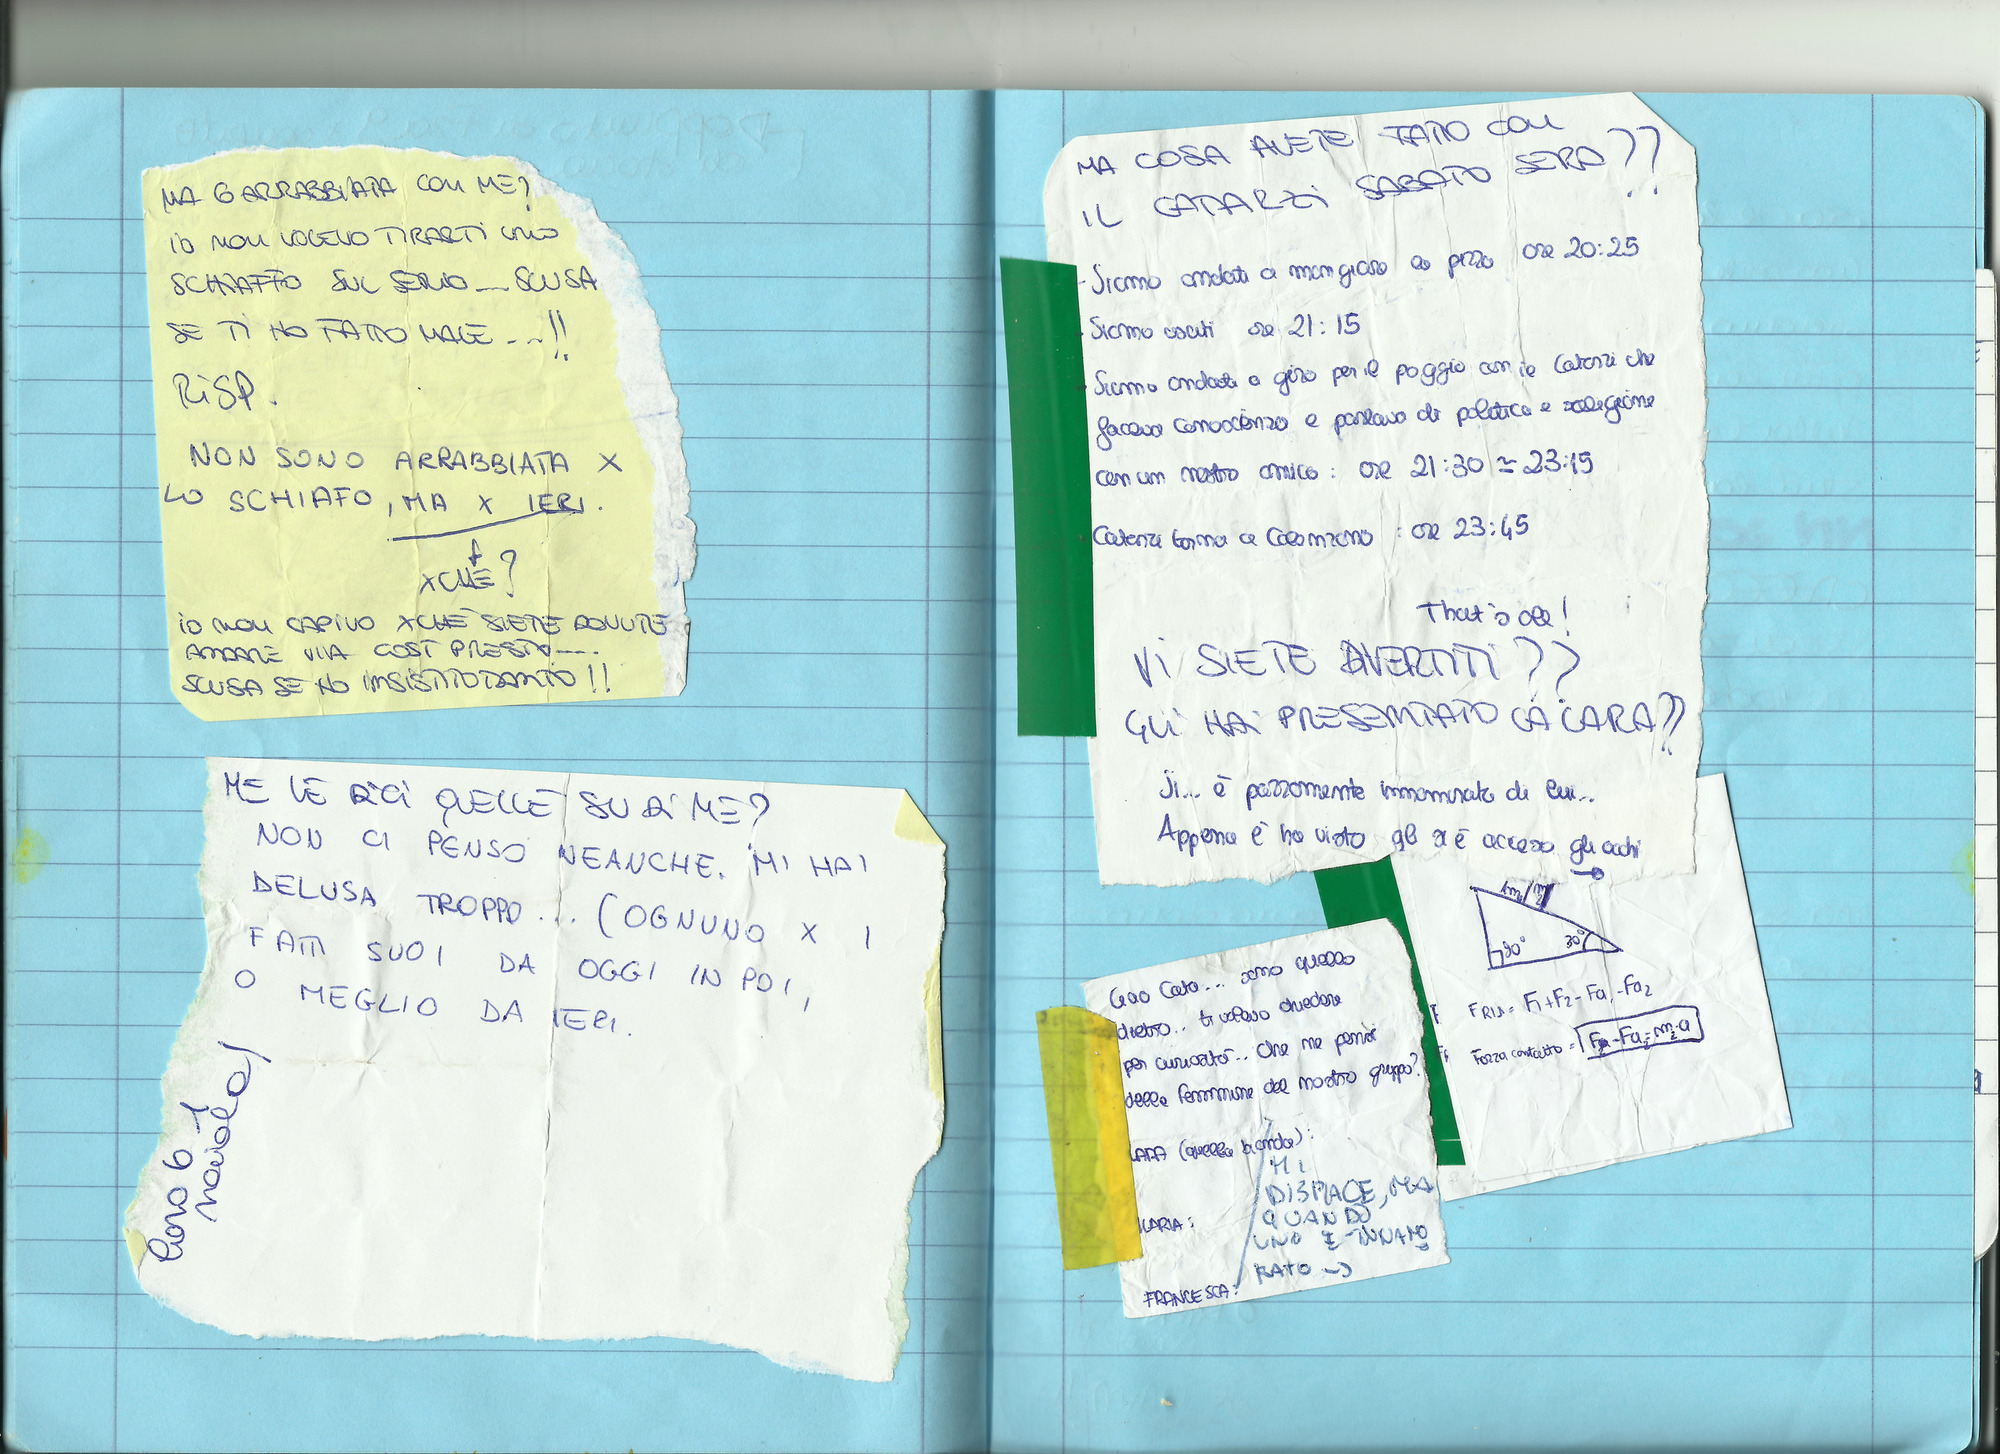 MA 6 ARRABBIATA CON ME?
iO NON VOLEVO TIRARTI UNO
SCHIAFFO SUL SERIO ... SCUSA
SE TI HO FATTO MALE ...!!
RiSP.
NON SONO ARRABBIATA X
LO SCHIAFO, MA X IERI.
XCHÈ?
iO NON CAPIVO XCHÈ SIETE DOVUTE
ANDARE VIA COSÌ PRESTO....
SCUSA SE HO INSISTITO TANTO!!
ME LE DiCi QUELLE SU Di ME?
NON CI PENSO NEANCHE. MI HAI
DELUSA TROPPO... (OGNUNO X I
FATTI SUOI DA OGGI IN POI,
O MEGLIO DA IERI.
MA COSA AVETE FATTO CON
IL CATARZi SABATO SERA??
- Siamo andati a mangiare la pizza ore 20:25
- Siamo usciti ore 21:15
- Siamo andati a giro per il poggio con il Catarzi che
faceva conoscenza e parlava di politica e religione
con un nostro amico: ore 21:30 ≃ 23:15
Catarzi torna a Calenzano : ore 23:45
That's all!
Vi SIETE DIVERTITI??
GLI HAi PRESENTATO LA LARA??
Si... è pazzamente innamorata di lui...
Appena l'ha visto gli si è acceso gli occhi
m₁ m₂
90° 30°
FRIS = F₁+F₂-Fa₁-Fa₂
Forza contatto = F₂-Fa₂=m₂·a
Ciao Cata... sono quello
dietro.. ti volevo chiedere
per curiosità.. Che ne pensi
delle femmine del nostro gruppo?
LARA (quella bionda):
MI
DISPIACE, MA
ILARIA: QUANDO
UNO È INNAMO
RATO →
FRANCESCA: